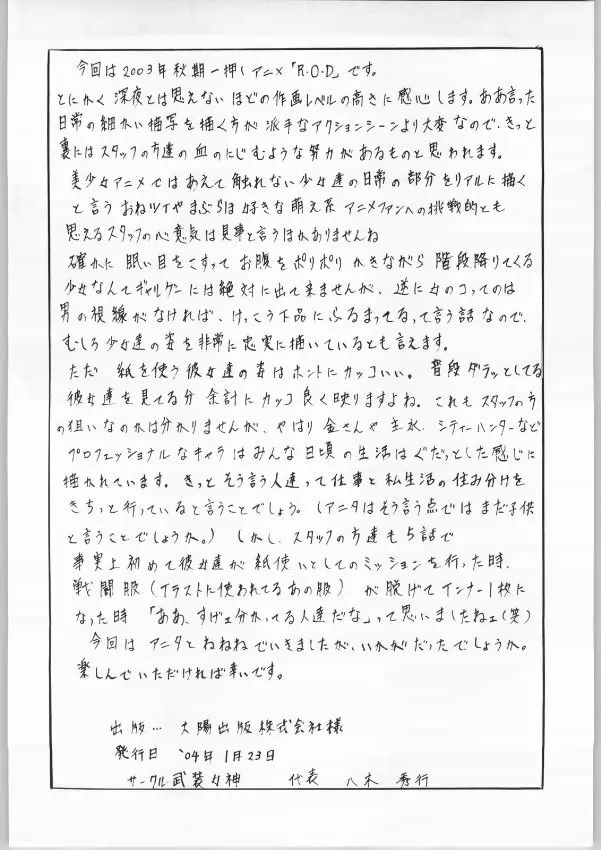 今回は2003年秋期一押しアニメ「R.O.D」です。
とにかく深夜とは思えないほどの作画レベルの高さに感心します。ああ言った
日常の細かい描写を描く方が派手なアクションシーンより大変なので、きっと
裏にはスタッフの方達の血のにじむような努力があるものと思われます。
美少女アニメではあえて触れない少女達の日常の部分をリアルに描く
と言うおねツイやまぶらほ好きな萌え系アニメファンへの挑戦的とも
思えるスタッフの心意気は見事と言うほかありませんね
確かに眠い目をこすってお腹をポリポリかきながら階段降りてくる
少女なんてギャルゲーには絶対に出て来ませんが、逆に女のコってのは
男の視線がなければ、けっこう下品にふるまってるって言う話なので、
むしろ少女達の姿を非常に忠実に描いているとも言えます。
ただ紙を使う彼女達の姿はホントにカッコいい。普段ダラッとしてる
彼女達を見てる分余計にカッコ良く映りますよね。これもスタッフの方
の狙いなのかは分かりませんが、やはり金さんや主水、シティーハンターなど
プロフェッショナルなキャラはみんな日頃の生活はぐだっとした感じに
描かれています。きっとそう言う人達って仕事と私生活の住み分けを
きちっと行っていると言うことでしょう。（アニタはそう言う点ではまだ子供
と言うことでしょうか。）しかし、スタッフの方達も5話で
事実上初めて彼女達が紙使いとしてのミッションを行った時、
戦闘服（イラストに使われてるあの服）が脱げてインナー1枚に
なった時「ああ、すげェ分かってる人達だな」って思いましたねェ（笑）
今回はアニタとねねねでいきましたが、いかがだったでしょうか。
楽しんでいただければ幸いです。
出版… 大陽出版株式会社様
発行日 '04年1月23日
サークル武装女神 代表 八木秀行